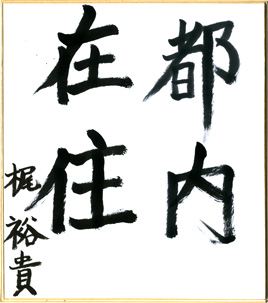 都内
在住
梶裕貴